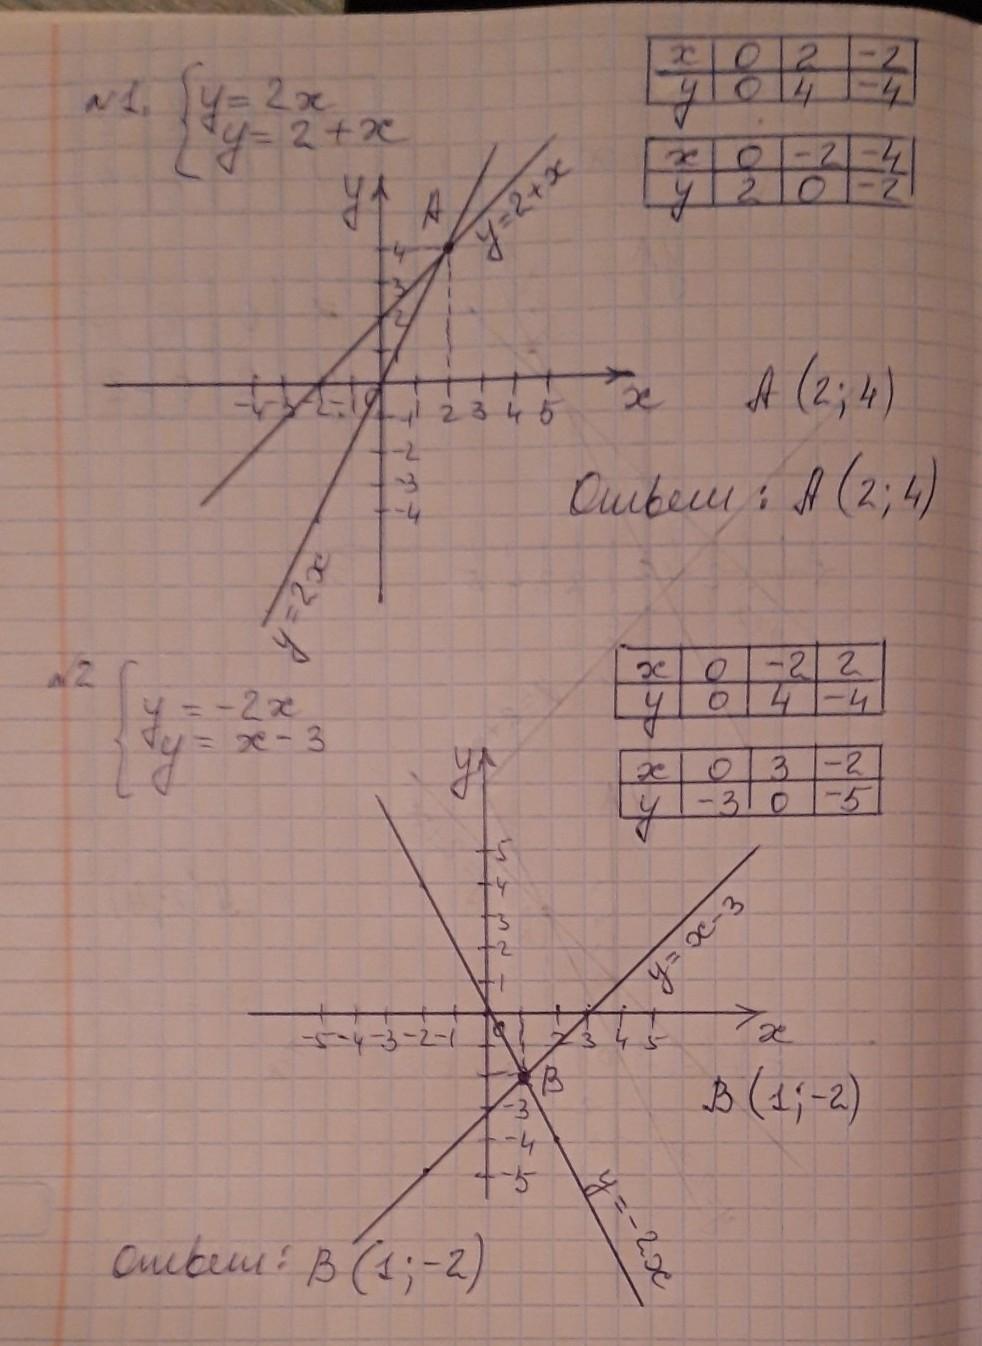 №1. { y = 2x
y = 2 + x
x 0 2 -2
y 0 4 -4
x 0 -2 -4
y 2 0 -2
y
A
y=2+x
4
3
2
1
-4 -3 -2 -1 0 1 2 3 4 5 x
-1
-2
-3
-4
y=2x
A (2; 4)
Ответ: A (2; 4)
№2 { y = -2x
y = x - 3
x 0 -2 2
y 0 4 -4
x 0 3 -2
y -3 0 -5
y
5
4
3
2
1
y=x-3
-5 -4 -3 -2 -1 0 1 2 3 4 5 x
B
-3
-4
-5
y=-2x
B (1; -2)
Ответ: B (1; -2)